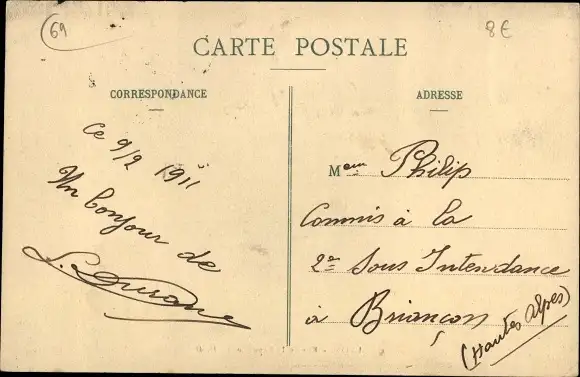 69
8€
CARTE POSTALE
CORRESPONDANCE
ADRESSE
Ce 9/2 1911
Un bonjour de
L. Durand
Mœur Philip
Commis à la
2e Sous Intendance
à Briançon
(Hautes Alpes)